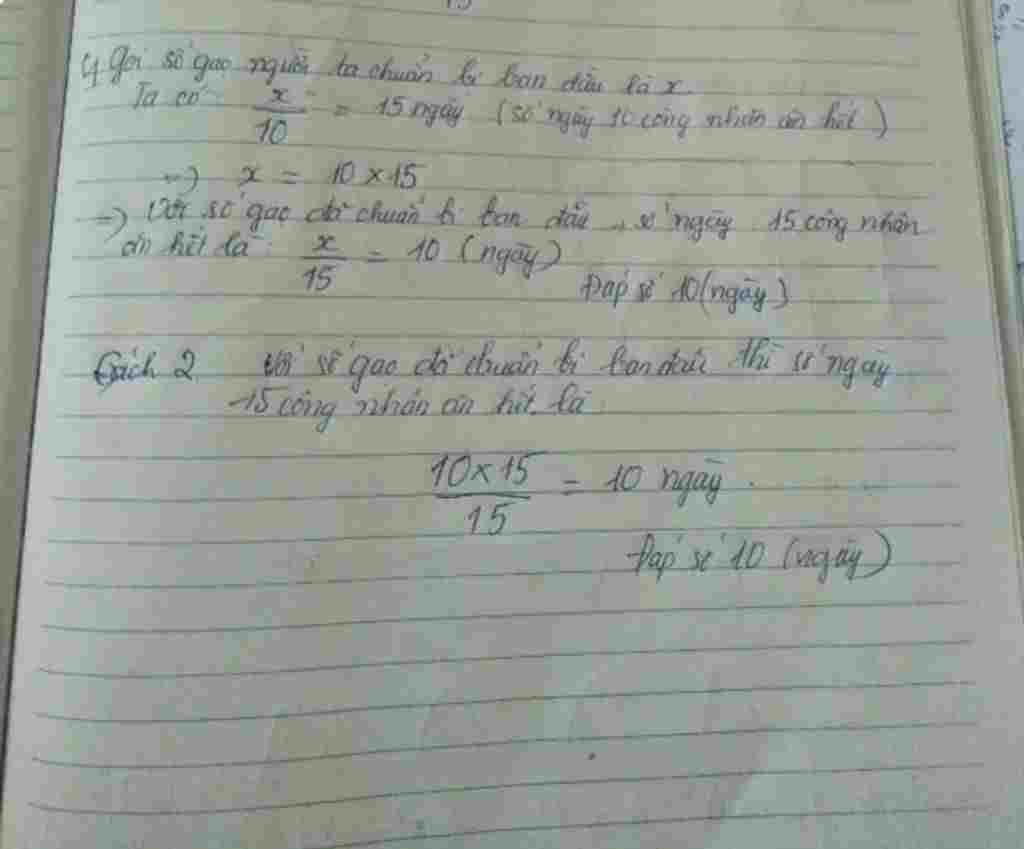 4, Gọi số gạo người ta chuẩn bị ban đầu là x.
Ta có x/10 = 15 ngày (số ngày 10 công nhân ăn hết)
=> x = 10 × 15
=> Với số gạo đã chuẩn bị ban đầu, số ngày 15 công nhân
ăn hết là: x/15 = 10 (ngày)
Đáp số 10 (ngày)
Cách 2 Với số gạo đã chuẩn bị ban đầu thì số ngày
15 công nhân ăn hết là
10 × 15 / 15 = 10 ngày.
Đáp số 10 (ngày)